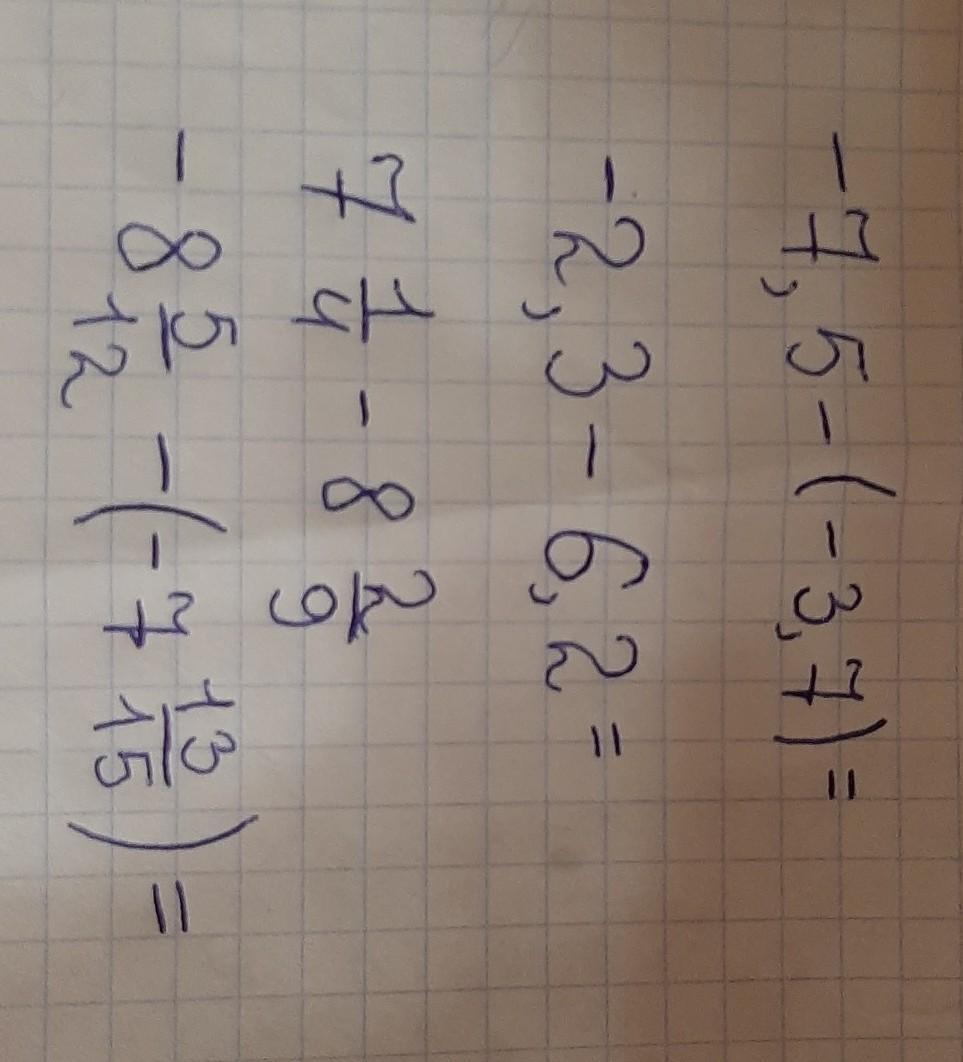 -7,5-(-3,7)=
-2,3-6,2=
7 1/4 - 8 2/9
-8 5/12 -(-7 13/15)=